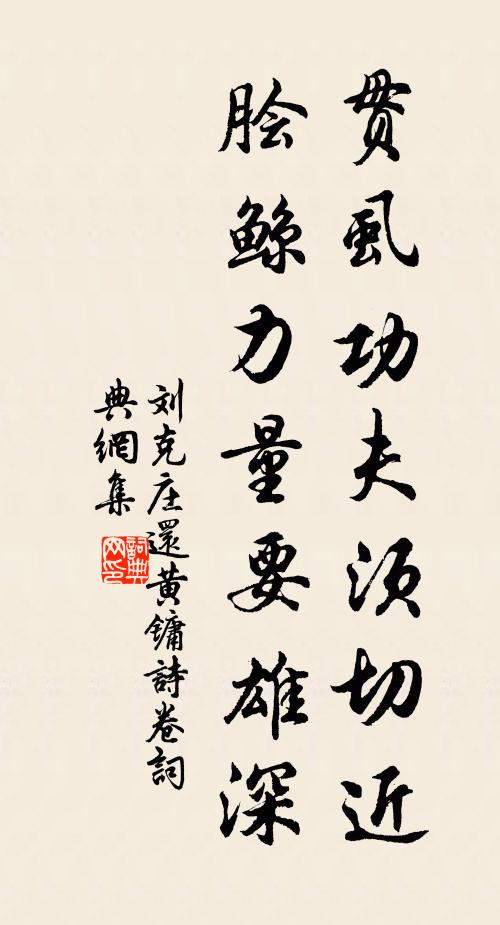 贯虱功夫须切近
脍鲸力量要雄深
刘克庄還黄鏞詩卷詞
典網集
詞典
网印